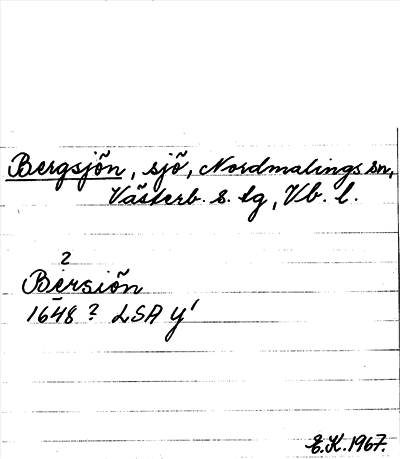 Bergsjön, sjö, Nordmalings sn,
Västerb. s. tg, Vb. l.
2
Bersiön
1648? LSA Y'
E.K. 1967.